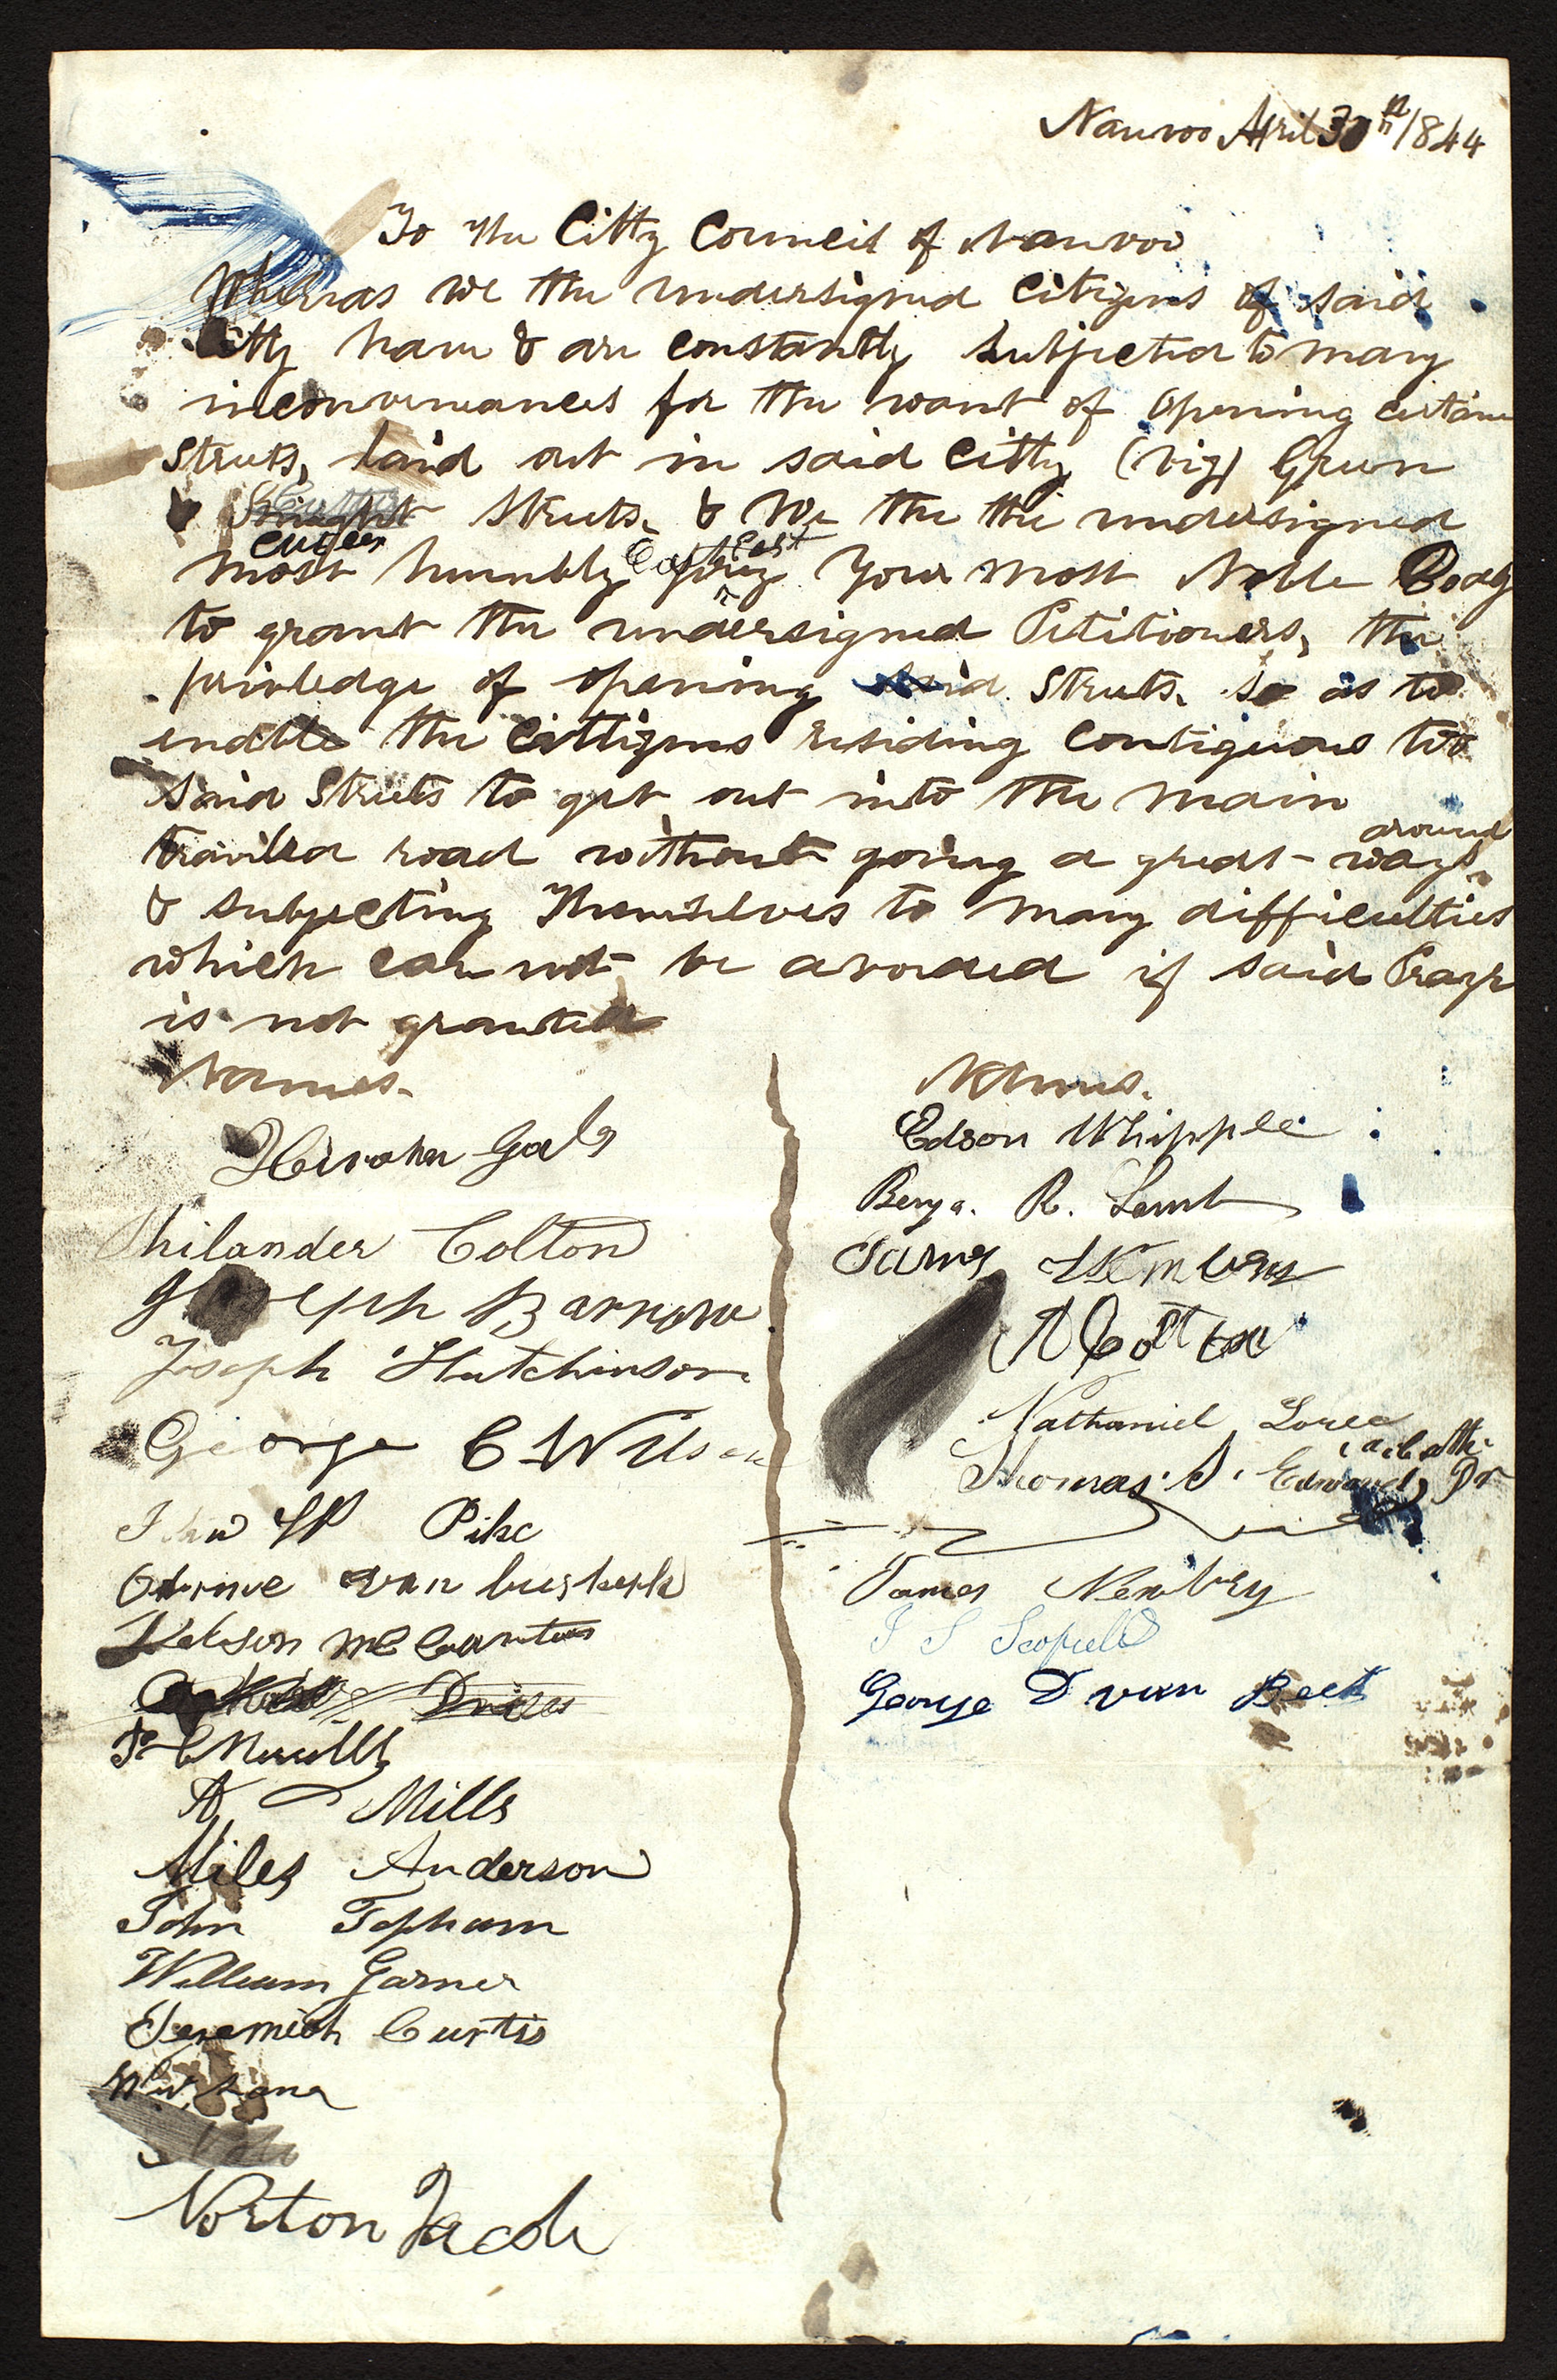 Nauvoo April 30th 1844
To the Citty Council of Nauvoo
Whereas we the undersigned Citizens of said
Citty have & are constantly subjected to many
inconveniances for the want of opening certain
Streets, laid out in said Citty (viz) Green
& Streets. & We the the undersigned
Cutler
most humbly pray your most Noble Body
to grant the undersigned Petitioners, the
privledge of opening said Streets. so as to
enable the Cittizens residing Contiguous to
said Streets to get out into the main
around
travilled road without going a great ways
& subjecting themselves to many difficulties
which can not be avoided if said Prayr
is not granted
Names.
Names.
Hiram Gates
Philander Colton
Joseph Barrow
Joseph Hutchinson
George C Wilson
Pike
van buskerk
Nelson
A Mills
Miles Anderson
John Topham
William Garner
Jeremiah Curtis
Norton Jacob
Edson Whipple
Benja. R. Lamb
James
A Colton
Nathaniel
Thomas S. Edwards
James Newbery
J S Scofield
George D van Beek